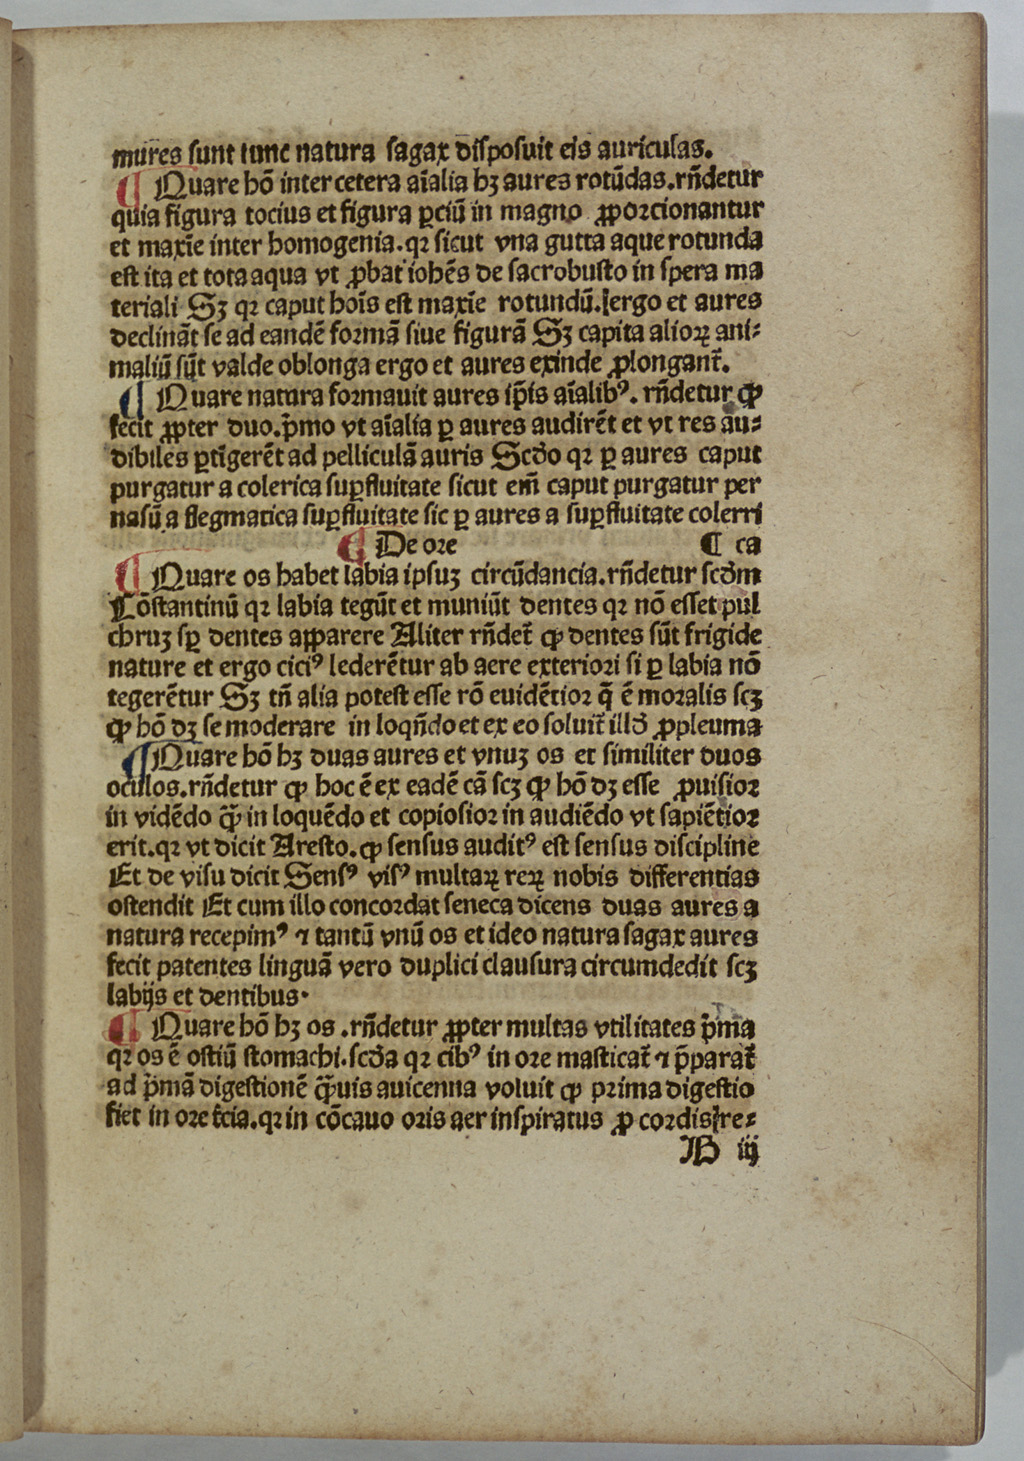 mures sunt tunc natura sagax disposuit eis auriculas.
¶ Quare hō inter cetera aīalia hꝫ aures rotūdas.rn̄detur
quia figura tocius et figura ꝑciū in magno ꝓporcionantur
et maxīe inter homogenia.qꝛ sicut vna gutta aque rotunda
est ita et tota aqua vt ꝓbat iohēs de sacrobusto in spera ma
teriali Sꝫ qꝛ caput hoīs est maxīe rotundū.ergo et aures
declināt se ad eandē formā siue figurā Sꝫ capita alioꝝ ani⸗
maliū sūt valde oblonga ergo et aures exinde ꝓlongant̄.
¶ Quare natura formauit aures ip̄is aīalibꝰ. rn̄detur ꝙ
fecit ꝓpter duo.p̄mo vt aīalia ꝑ aures audirēt et vt res au⸗
dibiles ꝑtigerēt ad pelliculā auris Scd̄o qꝛ ꝑ aures caput
purgatur a colerica suꝑfluitate sicut em̄ caput purgatur per
nasū a flegmatica suꝑfluitate sic ꝑ aures a suꝑfluitate colerri
¶ De ore ¶ ca
¶ Quare os habet labia ipsuꝫ circūdancia.rn̄detur scd̄m
Cōstantinū qꝛ labia tegūt et muniūt dentes qꝛ nō esset pul
chruꝫ sꝑ dentes apparere Aliter rn̄det̄ ꝙ dentes sūt frigide
nature et ergo cicīꝰ lederētur ab aere exteriori si ꝑ labia nō
tegerētur Sꝫ tn̄ alia potest esse rō euidētior q̄ ē moralis scꝫ
ꝙ hō dꝫ se moderare in loqn̄do et ex eo soluit̄ illd̄ ꝓpleuma
¶ Quare hō hꝫ duas aures et vnuꝫ os et similiter duos
oculos.rn̄detur ꝙ hoc ē ex eadē cā scꝫ ꝙ hō dꝫ esse ꝓuisior
in vidēdo ꝙ̄ in loquēdo et copiosior in audiēdo vt sapiētior
erit.qꝛ vt dicit Aresto.ꝙ sensus auditꝰ est sensus discipline
Et de visu dicit Sensꝰ visꝰ multaꝝ reꝝ nobis differentias
ostendit Et cum illo concordat seneca dicens duas aures a
natura recepimꝰ ⁊ tantū vnū os et ideo natura sagax aures
fecit patentes linguā vero duplici clausura circumdedit scꝫ
labijs et dentibus·
¶ Quare hō hꝫ os .rn̄detur ꝓpter multas vtilitates p̄ma
qꝛ os ē ostiū stomachi.scd̄a qꝛ cibꝰ in ore masticat̄ ⁊ p̄parat̄
ad p̄mā digestionē ꝙ̄uis auicenna voluit ꝙ prima digestio
fiet in ore t̄cia.qꝛ in cōcauo oris aer inspiratus ꝓ cordis re⸗
B iij